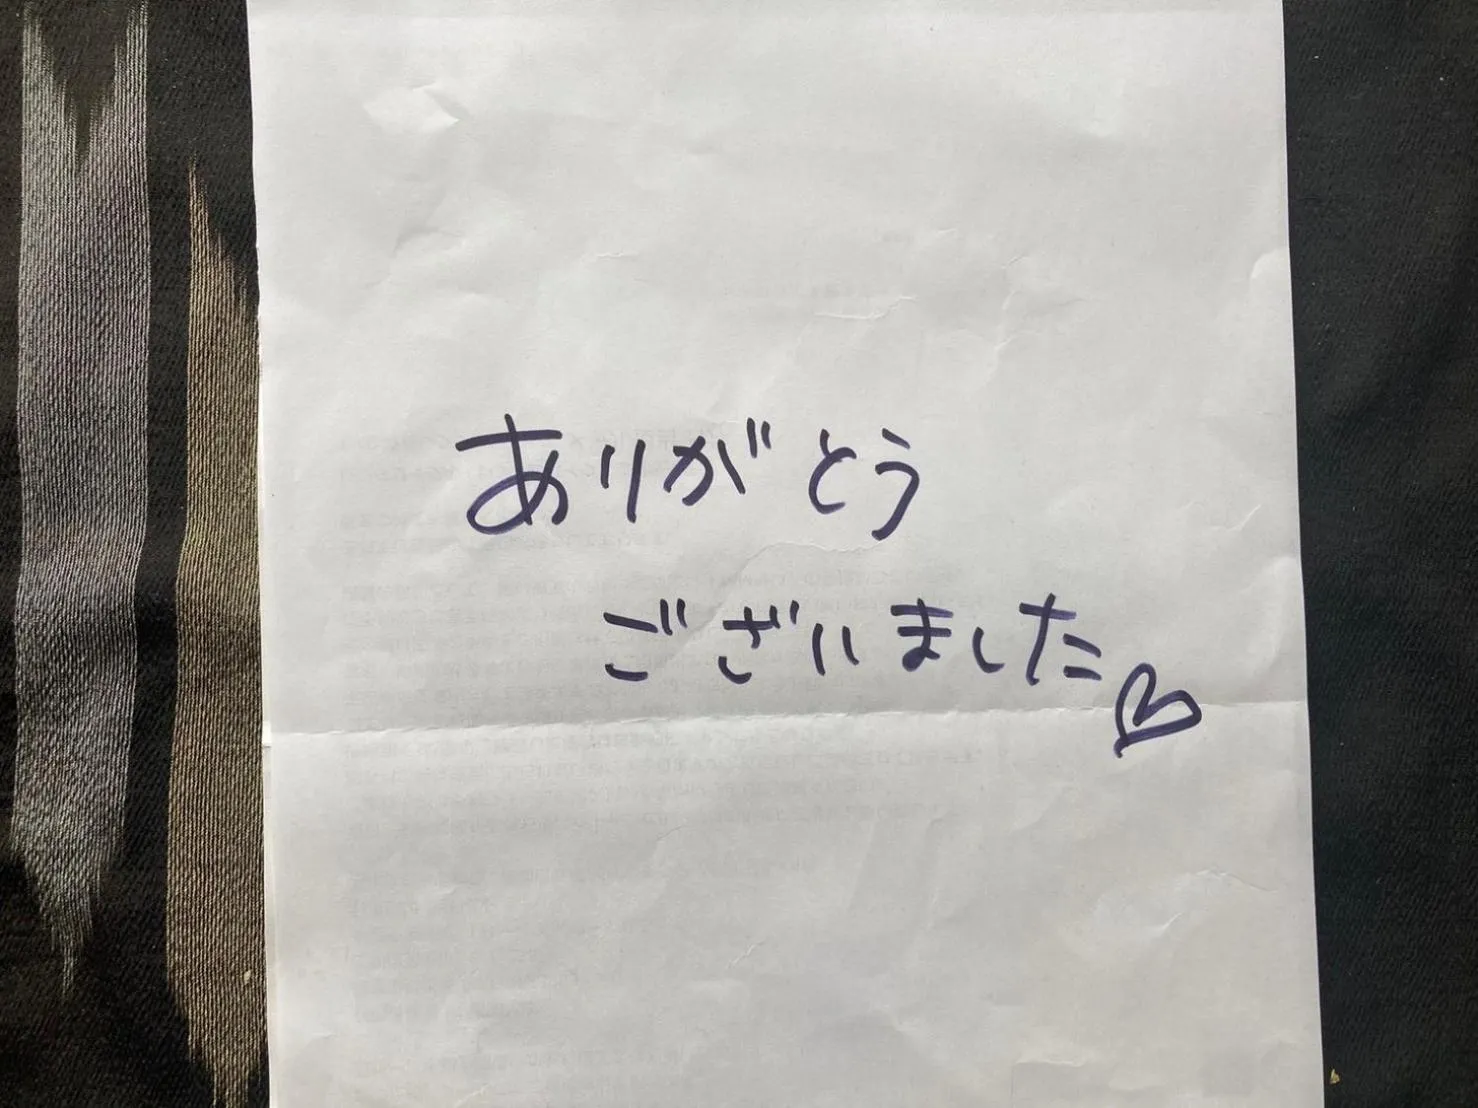 ありがとう
ございました♡